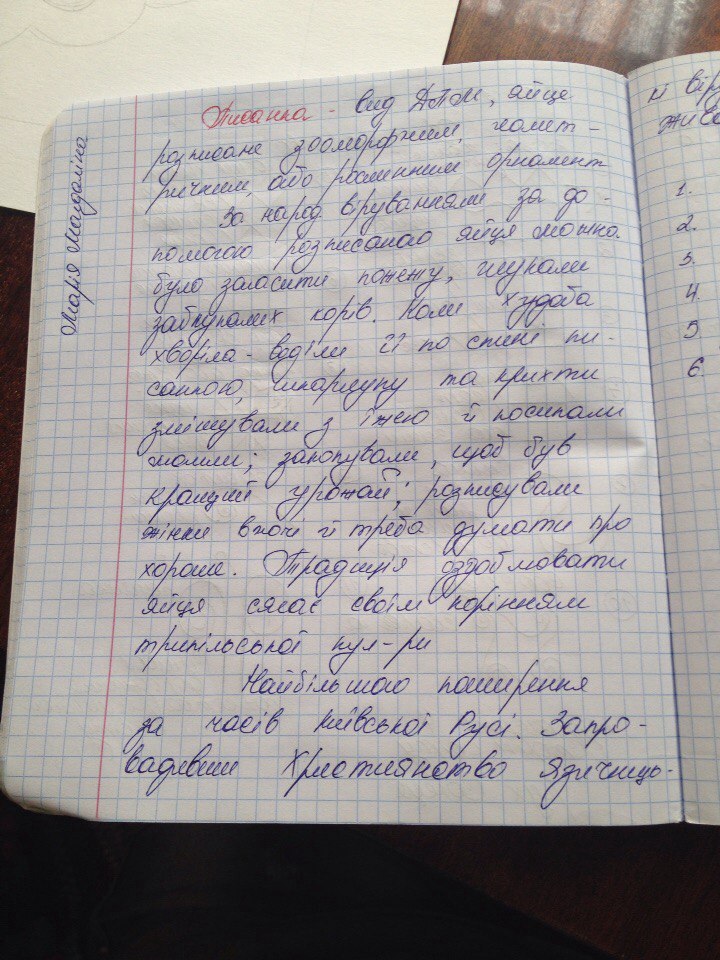 Марія Магдаліна
Писанка - вид ДПМ, яйце
розписане зооморфним, гомет-
ричним, або рослинним орнамент
За народ. віруваннями за до-
помогою розписаного яйця можна
було загасити пожежу, шукали
заблукалих корів. Коли худоба
хворіла - водили її по спині пи-
санкою, шкарлупу та крихти
змішували з їжею й посипали
закопували, щоб був
кращий урожай; розписували
жінки вночі й треба думати про
хороше. Традиція оздоблювати
яйця сягає своїм корінням
трипільської кул-ри
Найбільшого поширення
за часів Київської Русі. Запро-
вадивши Християнство язичниць-
кі віру
живо
1.
2.
3.
4.
5
6.